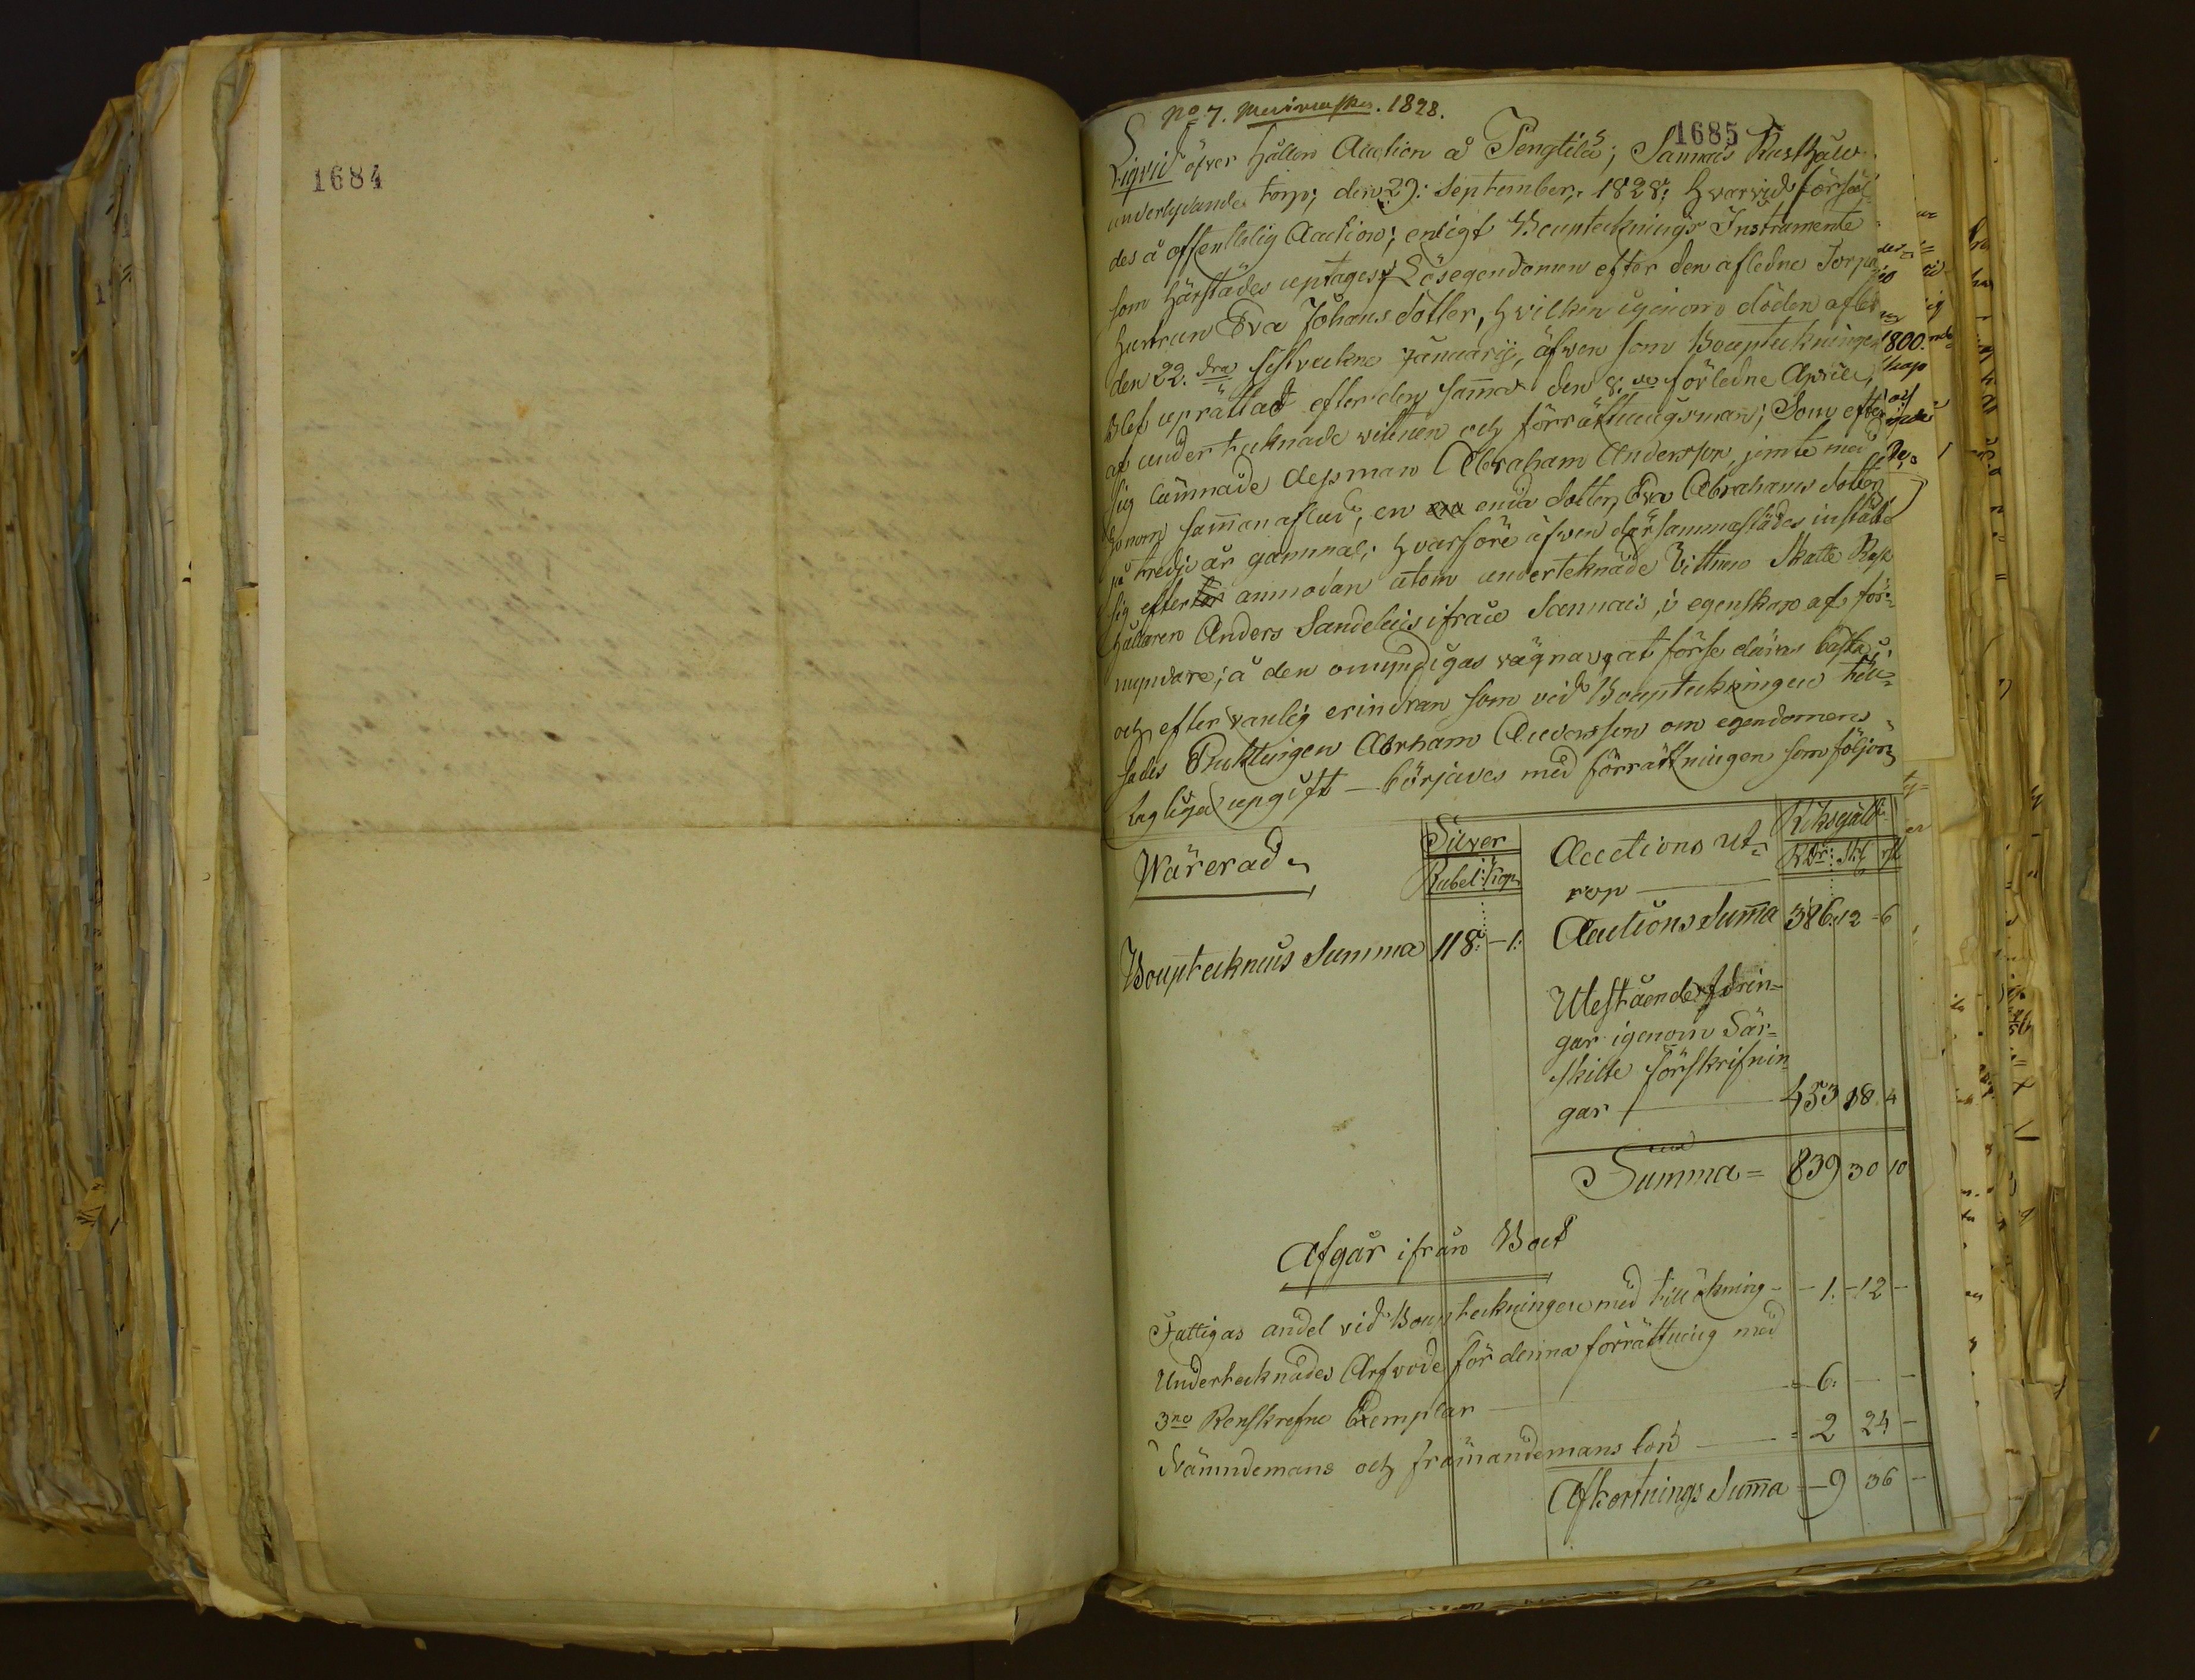 1684
No 7. 1828.
1685
Liqvid öfver hållen Auction å Pengtilä; Sannais Rusthåll
underlydande torp; den 29: September, 1828; hvarvid försål
des å offenttelig Auction; enligt Boupteknings Instrumente
som härstädes uptages, Lösegendomen efter den aflidne Torpa
hustrun Eva Johansdotter, hvilken igenom döden afled
den 22. dra sistvekne Januarij, äfven som Boupteckningen
blef uprättad efter den samma den 8. de förledne Aprill,
af undertecknade vittnen och förrättningsman; Som efter
sig lämnade Mannen Abraham Andersson, jemte med
honom samman aflad, en enda dotter, Eva Abrahams dotter
på tredje år gammal; hvarföre äfven därsammastädes instälte
sig efter anmodan utom undertecknade Vittnen Skatte Rust
hållaren Anders Sandelius ifrån Sannais, i egenskap af för=
myndare; å den omyndigas vägnar, at förse däras bästa;
och efter vanlig erindran som vid Boupteckningen till=
sades Enklingen Abrham Andersson om egendomens
togliga upgift — börjades med förrättningen som följer
Wärerad
Silver
Rubel: kop.
Auctions ut=
rop
Riksgäld
RDr: sk rst
Bouptecknings Summa 118: - 1:
Auctions Suma 386. 12 - 6
Utestående fordrin=
gar igenom Sär=
skilte förskrifnin
gar — 453 18. 4
Summa = 839 30 10
Afgår ifrån Boet
Fattigas andel vid Boupteckningen med tillökning - - 1. - 12 -
Undertecknades Arfvode för denna förrättning med
3ne Renskrefne Exemplar — 6. — -
Nämndemans och främandemans lön — 2 24 -
Afkortnings Suma - 9 36 -
1800.